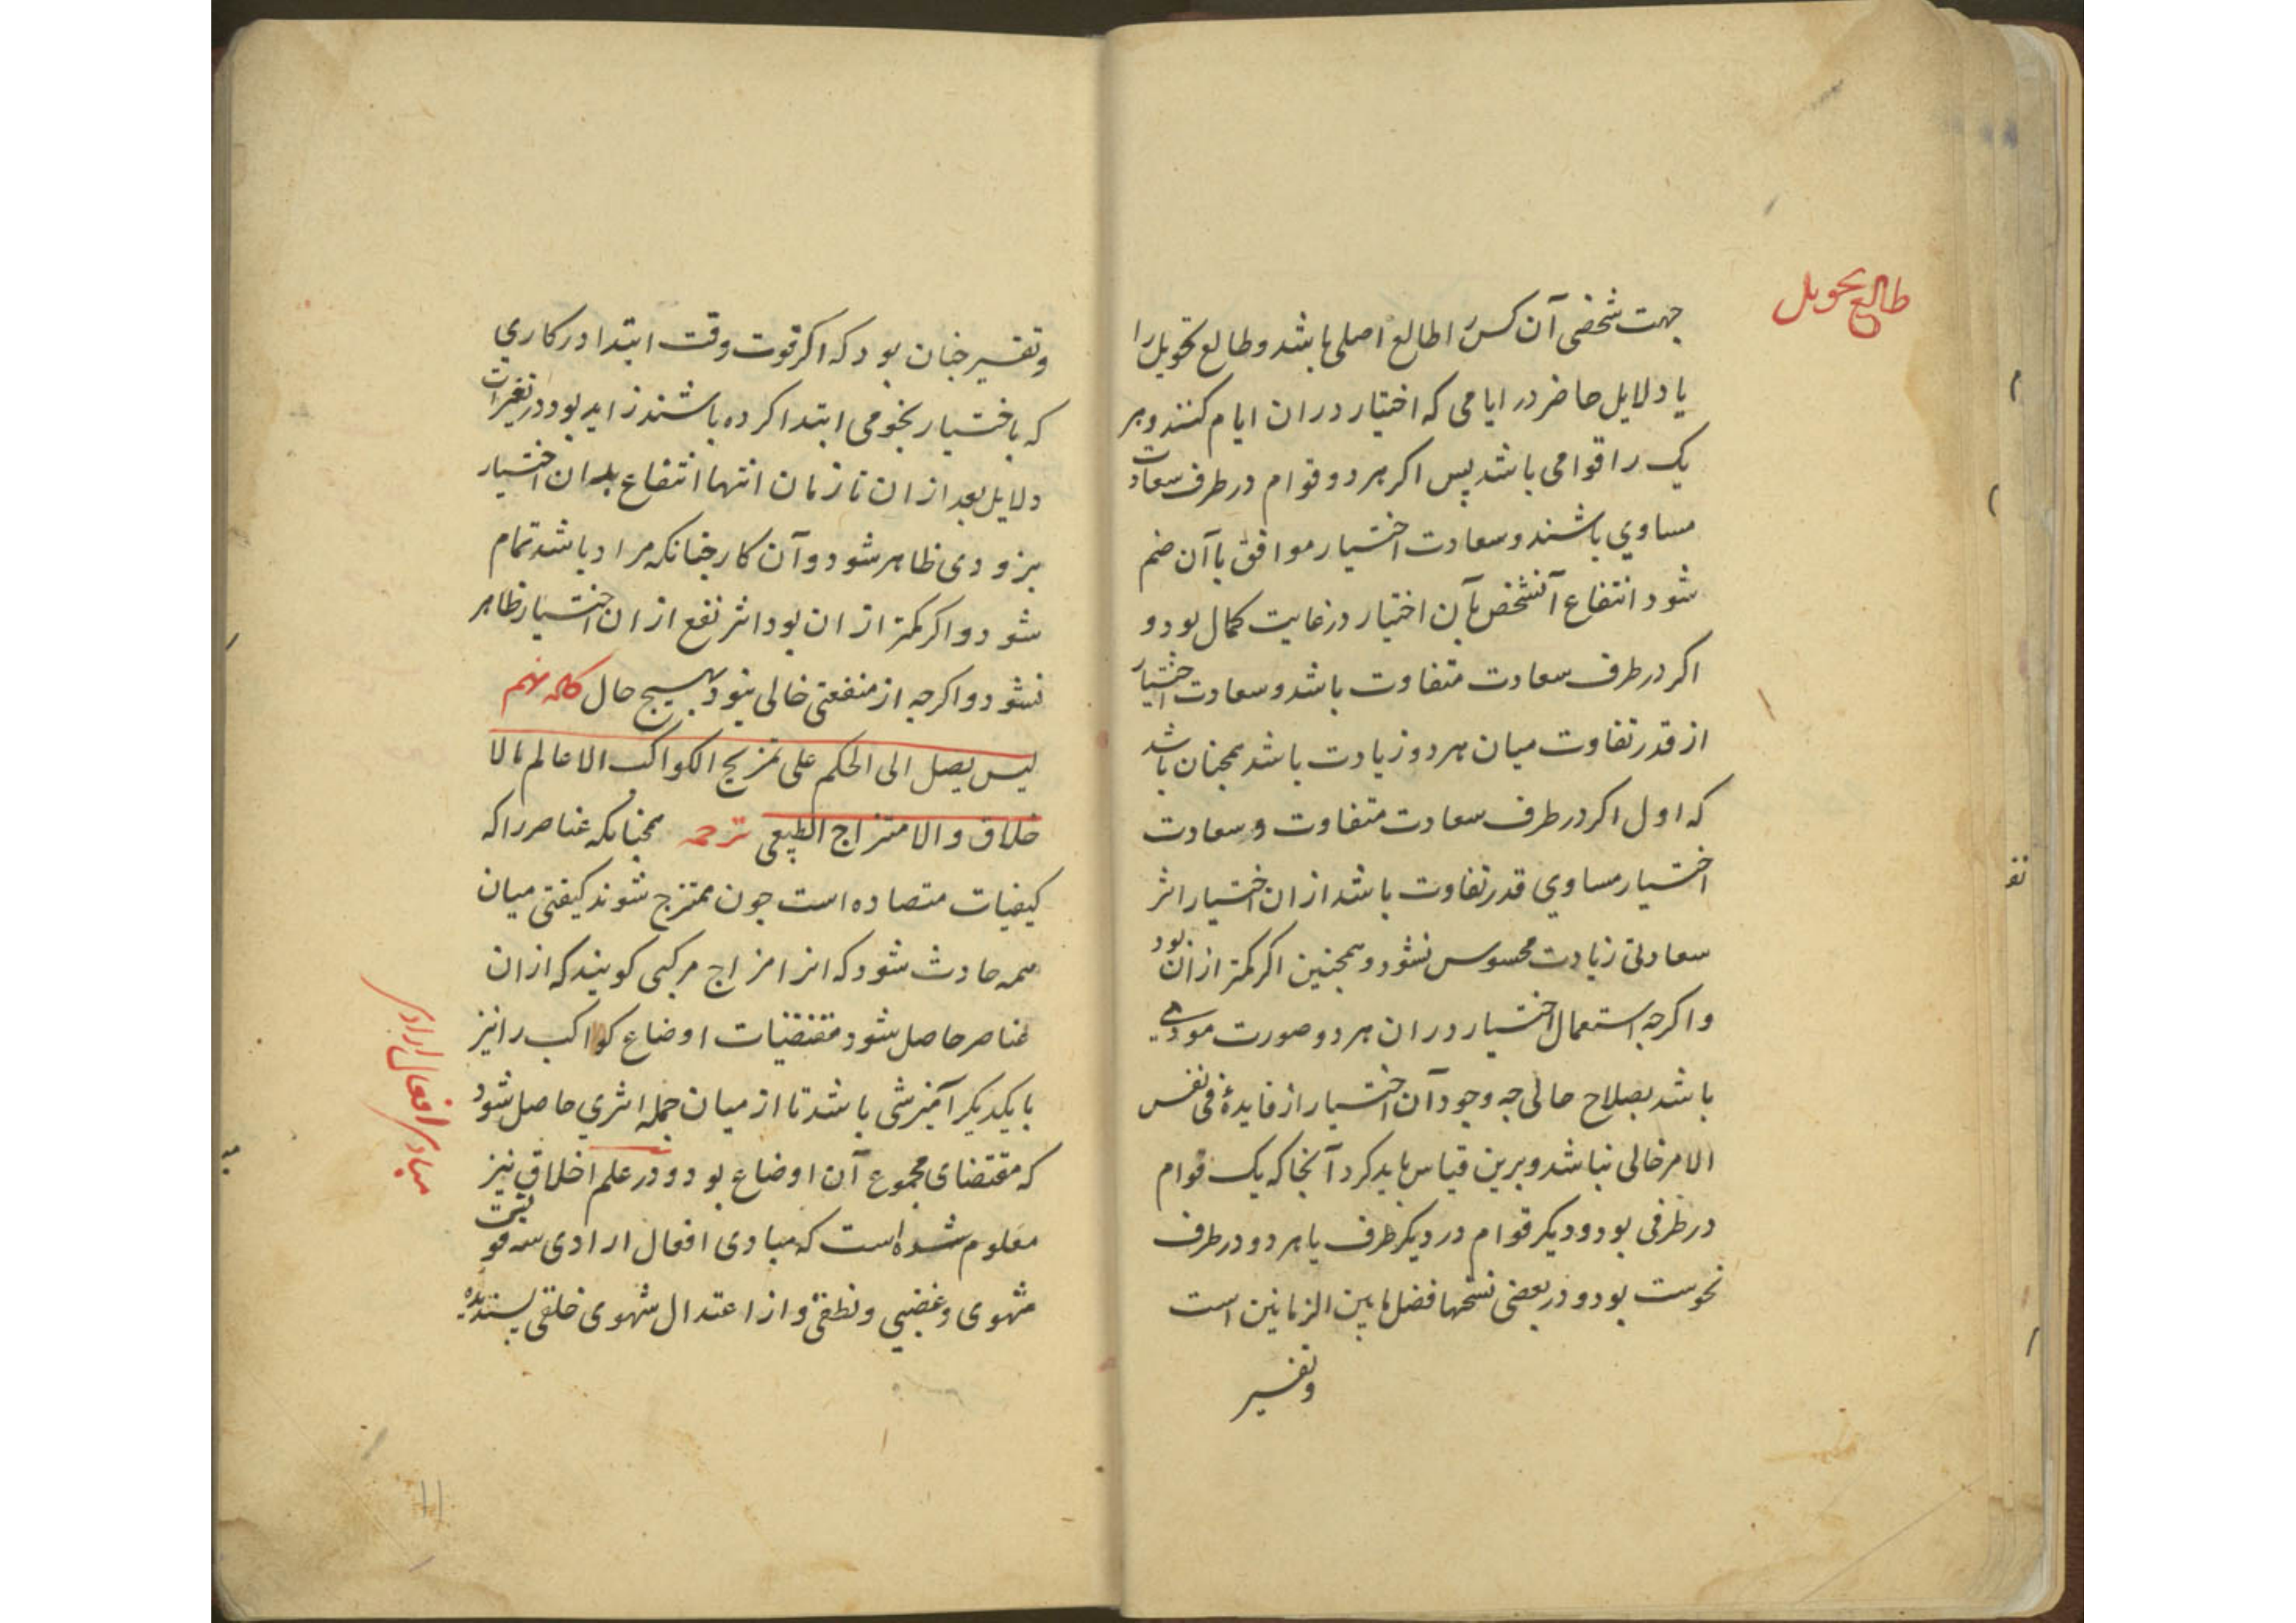 طالع تحویل
جهت شخصی آن کس را طالع اصلی باشد و طالع تحویل را
یا دلایل حاضر در ایامی که اختیار در ان ایام کنند و هر
یک را قوامی باشد پس اکر هر دو قوام در طرف سعادت
مساوي باشند و سعادت اختیار موافق با آن ضم
شود انتفاع آنشخص بآن اختیار در غایت کمال بود و
اکر در طرف سعادت متفاوت باشد و سعادت اختیار
از قدر تفاوت میان هر دو زیادت باشد همچنان باشد
که اول اکر در طرف سعادت متفاوت و سعادت
اختیار مساوي قدر تفاوت باشد از ان اختیار اثر
سعادتی زیادت محسوس نشود و همچنین اکر کمتر از ان بود
و اکرجه استعمال اختیار در ان هر دو صورت مودي
باشد بصلاح حالی جه وجود آن اختیار از فایدۀ فی نفس
الامر خالی نباشد و برین قیاس باید کرد آنجا که یک قوام
در طرفی بود و دیکر قوام در دیکر طرف یا هر دو در طرف
نحوست بود و در بعضی نسخها فضل ما بین الزمانین است
و تفسیر
و تفسیر جنان بود که اکر قوت وقت ابتدا در کاري
که باختیار نجومی ابتدا کرده باشند زاید بود در تغیرات
دلایل بعد از ان تا زمان انتها انتفاع بدان اختیار
بزودی ظاهر شود و آن کار جنانکه مراد باشد تمام
شود و اکر کمتر از ان بود اثر نفع از ان اختیار ظاهر
نشود و اکرجه از منفعتی خالی نبود بهیج حال کلمه نهم
لیس یصل الی الحکم علی تمزیج الکواکب الا عالم بالا
خلاق و الامتزاج الطبیعی ترجمه همجنانکه عناصر را که
کیفیات متضاده است جون ممتزج شوند کیفتی میان
همه حادث شود که انرا مزاج مرکبی کویند که از ان
عناصر حاصل شود مقتضیات اوضاع کواکب را نیز
با یکدیکر آمیزشی باشد تا از میان جمله اثري حاصل شود
که مقتضای مجموع آن اوضاع بود و در علم اخلاق نیز
معلوم شده است که مبادی افعال ارادی سه قوتست
شهوی و غضبی و نطقی و از اعتدال شهوی خلقی پسندیده
مبادی افعال ارادی